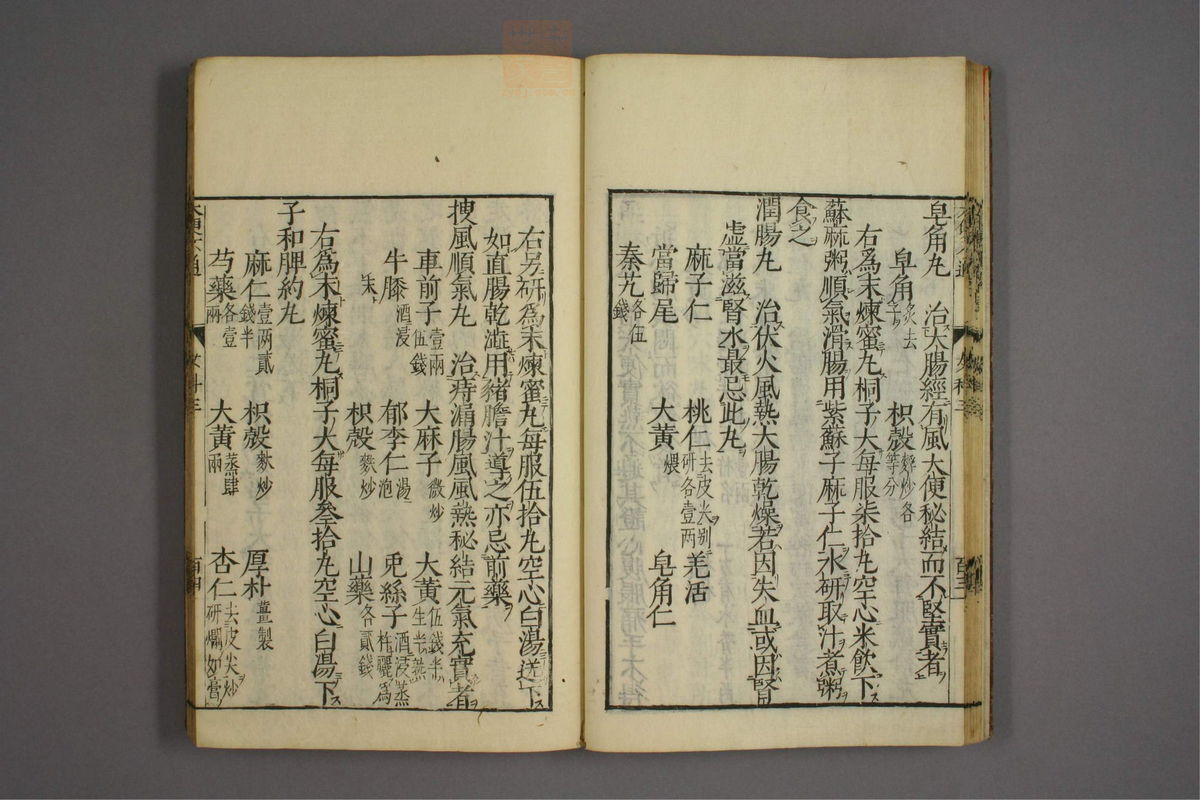 皂角丸　治大腸經有風大便秘結而不堅實者
皂角炙去子　枳殼麩炒各等分
右爲末煉蜜丸桐子大每服柒拾丸空心米飲下
蘇麻粥順氣滑腸用紫蘇子麻子仁水研取汁煮粥
食之
潤腸丸　治伏火風熱大腸乾燥若因失血或因腎
虚當滋腎水最忌此丸
麻子仁　桃仁去皮尖别研各壹兩　羌活
當歸尾　大黃煨　皂角仁
秦艽各伍錢
右另研爲末煉蜜丸每服伍拾丸空心白湯送下
如直腸乾澁用豬膽汁導之亦忌前藥
搜風順氣丸　治痔漏腸風風熱秘結元氣充實者
車前子壹兩伍錢　大麻子微炒　大黃伍錢半生半熟
牛膝酒浸　郁李仁湯泡　兎絲子酒浸蒸杵曬爲
末　枳殼麩炒　山藥各貳錢
右爲末煉蜜丸桐子大每服叄拾丸空心白湯下
子和脾約丸
麻仁壹兩貳錢半　枳殼麩炒　厚朴薑製
芍藥各壹兩　大黃蒸肆兩　杏仁去皮尖炒研爛如膏